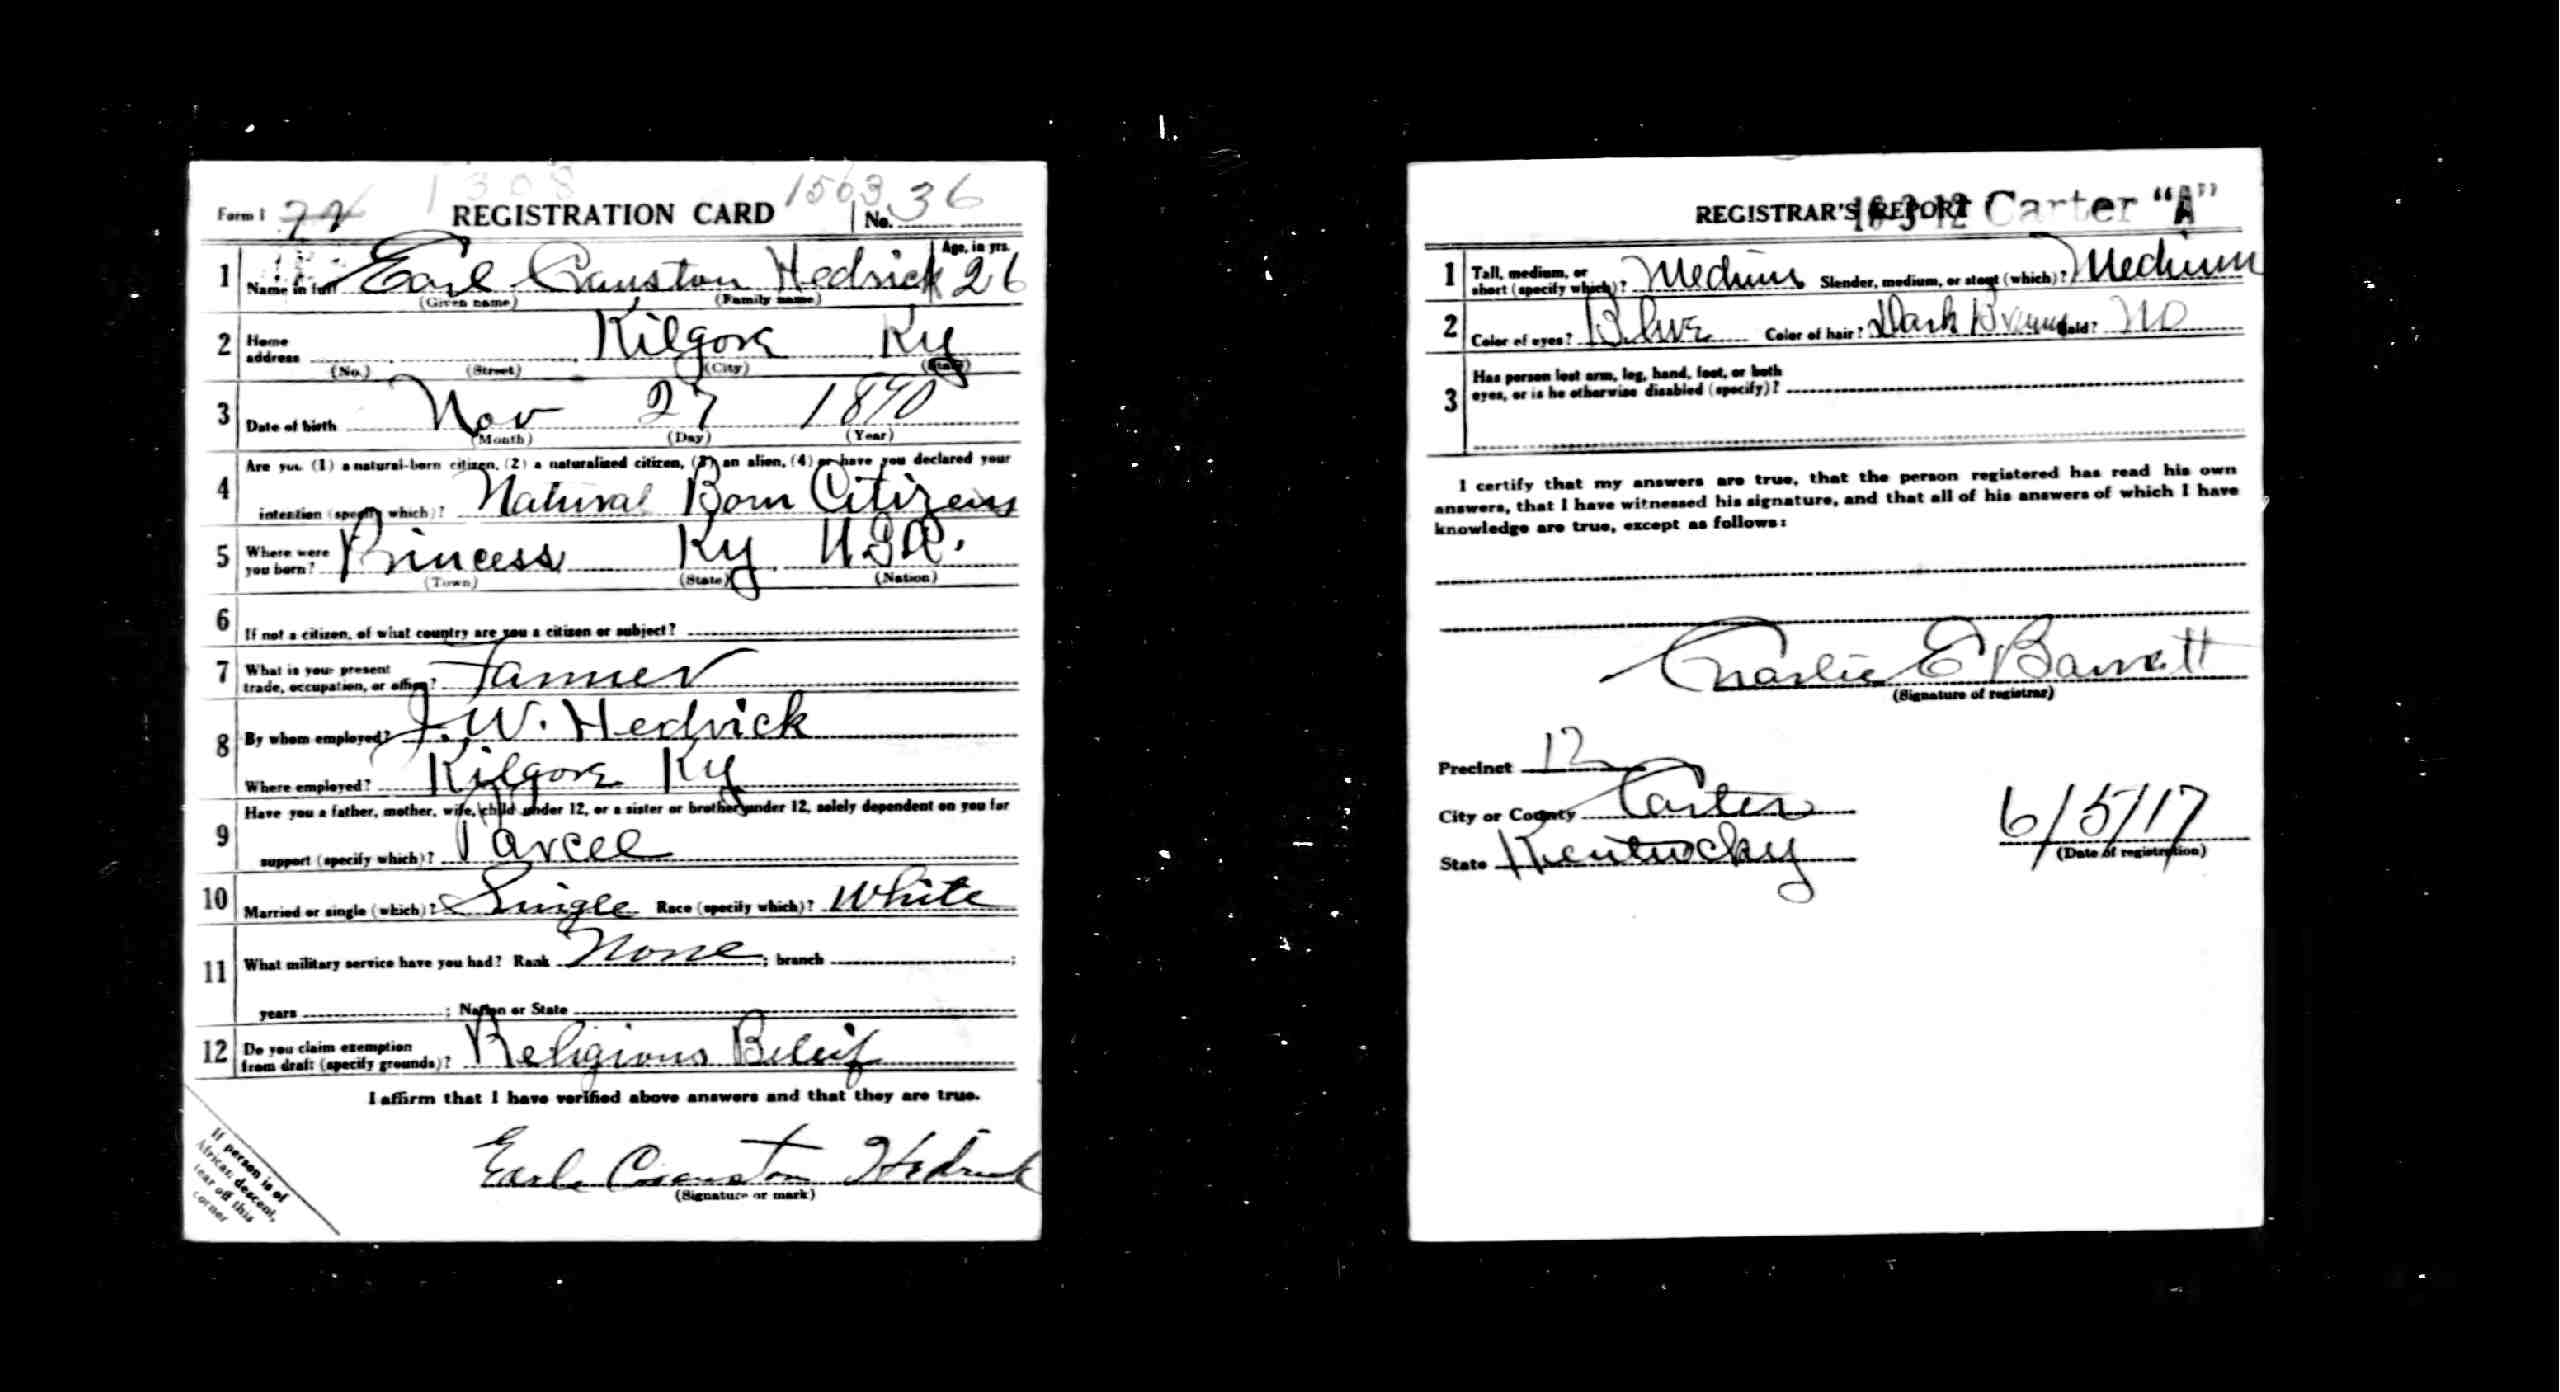 1308
Form 1 REGISTRATION CARD 1503 No. 36
1 Name in full Earl Cranston Hedrick Age, in yrs. 26
(Given name) (Family name)
2 Home address Kilgore Ky
(No.) (Street) (City) (State)
3 Date of birth Nov 27 1890
(Month) (Day) (Year)
4 Are you (1) a natural-born citizen, (2) a naturalized citizen, (3) an alien, (4) or have you declared your
intention (specify which)? Natural Born Citizens
5 Where were you born? Princess Ky U.S.A.
(Town) (State) (Nation)
6 If not a citizen, of what country are you a citizen or subject?
7 What is your present trade, occupation, or office? Farmer
8 By whom employed? J. W. Hedrick
Where employed? Kilgore Ky
9 Have you a father, mother, wife, child under 12, or a sister or brother under 12, solely dependent on you for
support (specify which)?
10 Married or single (which)? Single Race (specify which)? White
11 What military service have you had? Rank None; branch ;
years ; Nation or State
12 Do you claim exemption from draft (specify grounds)? Religious Beleif
I affirm that I have verified above answers and that they are true.
Earl Cranston Hedrick
(Signature or mark)
If person is of
African descent,
tear off this
corner
REGISTRAR'S REPORT 16-3-12 Carter "A"
1 Tall, medium, or short (specify which)? Medium Slender, medium, or stout (which)? Medium
2 Color of eyes? Blue Color of hair? Dark Brown Bald? No
3 Has person lost arm, leg, hand, foot, or both
eyes, or is he otherwise disabled (specify)?
I certify that my answers are true, that the person registered has read his own
answers, that I have witnessed his signature, and that all of his answers of which I have
knowledge are true, except as follows:
Charlie E Barrett
(Signature of registrar)
Precinct 12
City or County Carter
State Kentucky
6/5/17
(Date of registration)